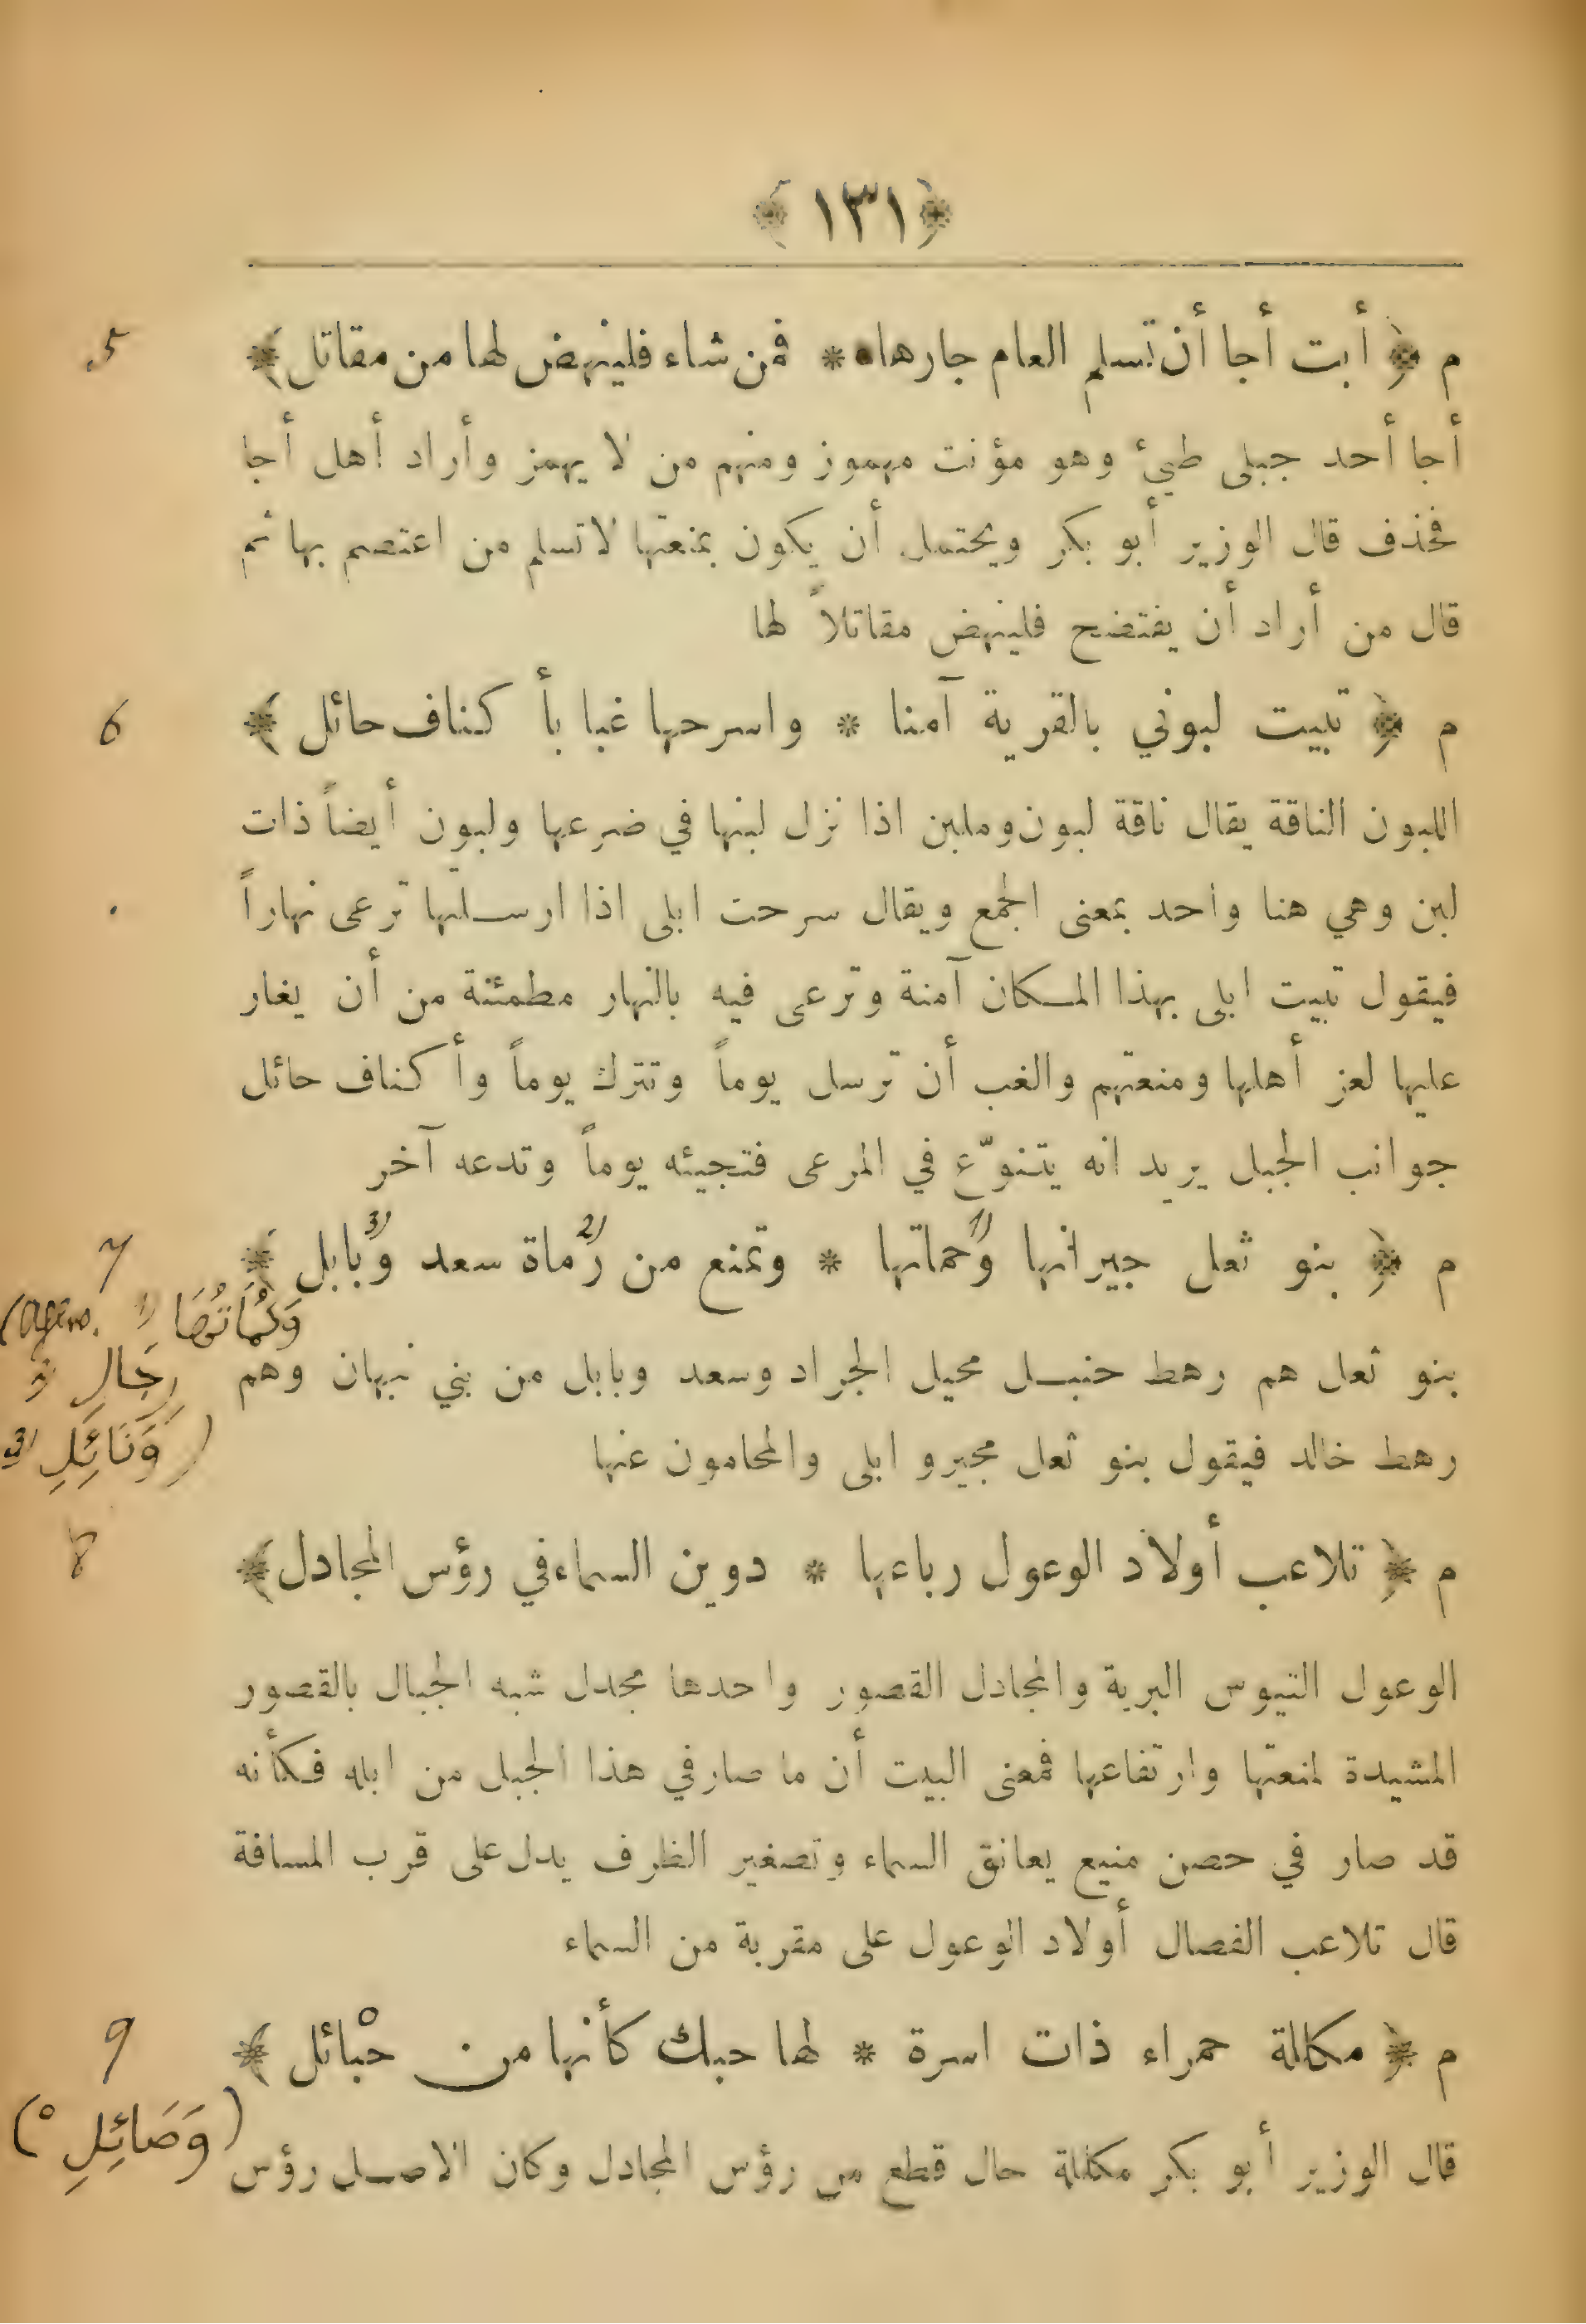 ﴿ ١٣١ ﴾
5
م ﴿ أبت أجا أن تسلم العام جارها * فمن شاء فلينهض لها من مقاتل ﴾
أجا أحد جبلى طيئ وهو مؤنت مهموز ومنهم من لا يهمز وأراد أهل أجا
فحذف قال الوزير أبو بكر ويحتمل أن يكون بمنعتها لا تسلم من اعتصم بها ثم
قال من أراد أن يفتضح فلينهض مقاتلاً لها
6
م ﴿ تبيت لبوني بالقرية آمنا * واسرحها غبا بأ كناف حائل ﴾
اللبون الناقة يقال ناقة لبون وملبن اذا نزل لبنها في ضرعها ولبون أيضاً ذات
لبن وهي هنا واحد بمعنى الجمع ويقال سرحت ابلى اذا ارسلتها ترعى نهاراً
فيقول تبيت ابلى بهذا المكان آمنة وترعى فيه بالنهار مطمئنة من أن يغار
عليها لعز أهلها ومنعتهم والغب أن ترسل يوماً وتترك يوماً وأ كناف حائل
جوانب الجبل يريد انه يتنوّع في المرعى فتجيئه يوماً وتدعه آخر
7
م ﴿ بنو ثعل جيرانها وحماتها (1 * وتمنع من رُماة (2 سعد وبابل (3 ﴾
(Ahlw. (1 وَكُمَاتُهَا
رِجَالِ (2
(وَنَائِلِ (3
بنو ثعل هم رهط حنبل محيل الجراد وسعد وبابل من بني نبهان وهم
رهط خالد فيقول بنو ثعل مجيرو ابلى والمحامون عنها
8
م ﴿ تلاعب أولاد الوعول رباعها * دوين السماء في رؤس المجادل ﴾
الوعول التيوس البرية والمجادل القصور واحدها مجدل شبه الجبال بالقصور
المشيدة لمنعتها وارتفاعها فمعنى البيت أن ما صار في هذا الجبل من ابله فكأنه
قد صار في حصن منيع يعانق السماء وتصغير الظرف يدل على قرب المسافة
قال تلاعب الفصال أولاد الوعول على مقربة من السماء
9
م ﴿ مكللة حمراء ذات اسرة * لها حبك كأنها من حبائل° ﴾
(وَصَائِلِ °)
قال الوزير أبو بكر مكللة حال قطع من رؤس المجادل وكان الاصل رؤس